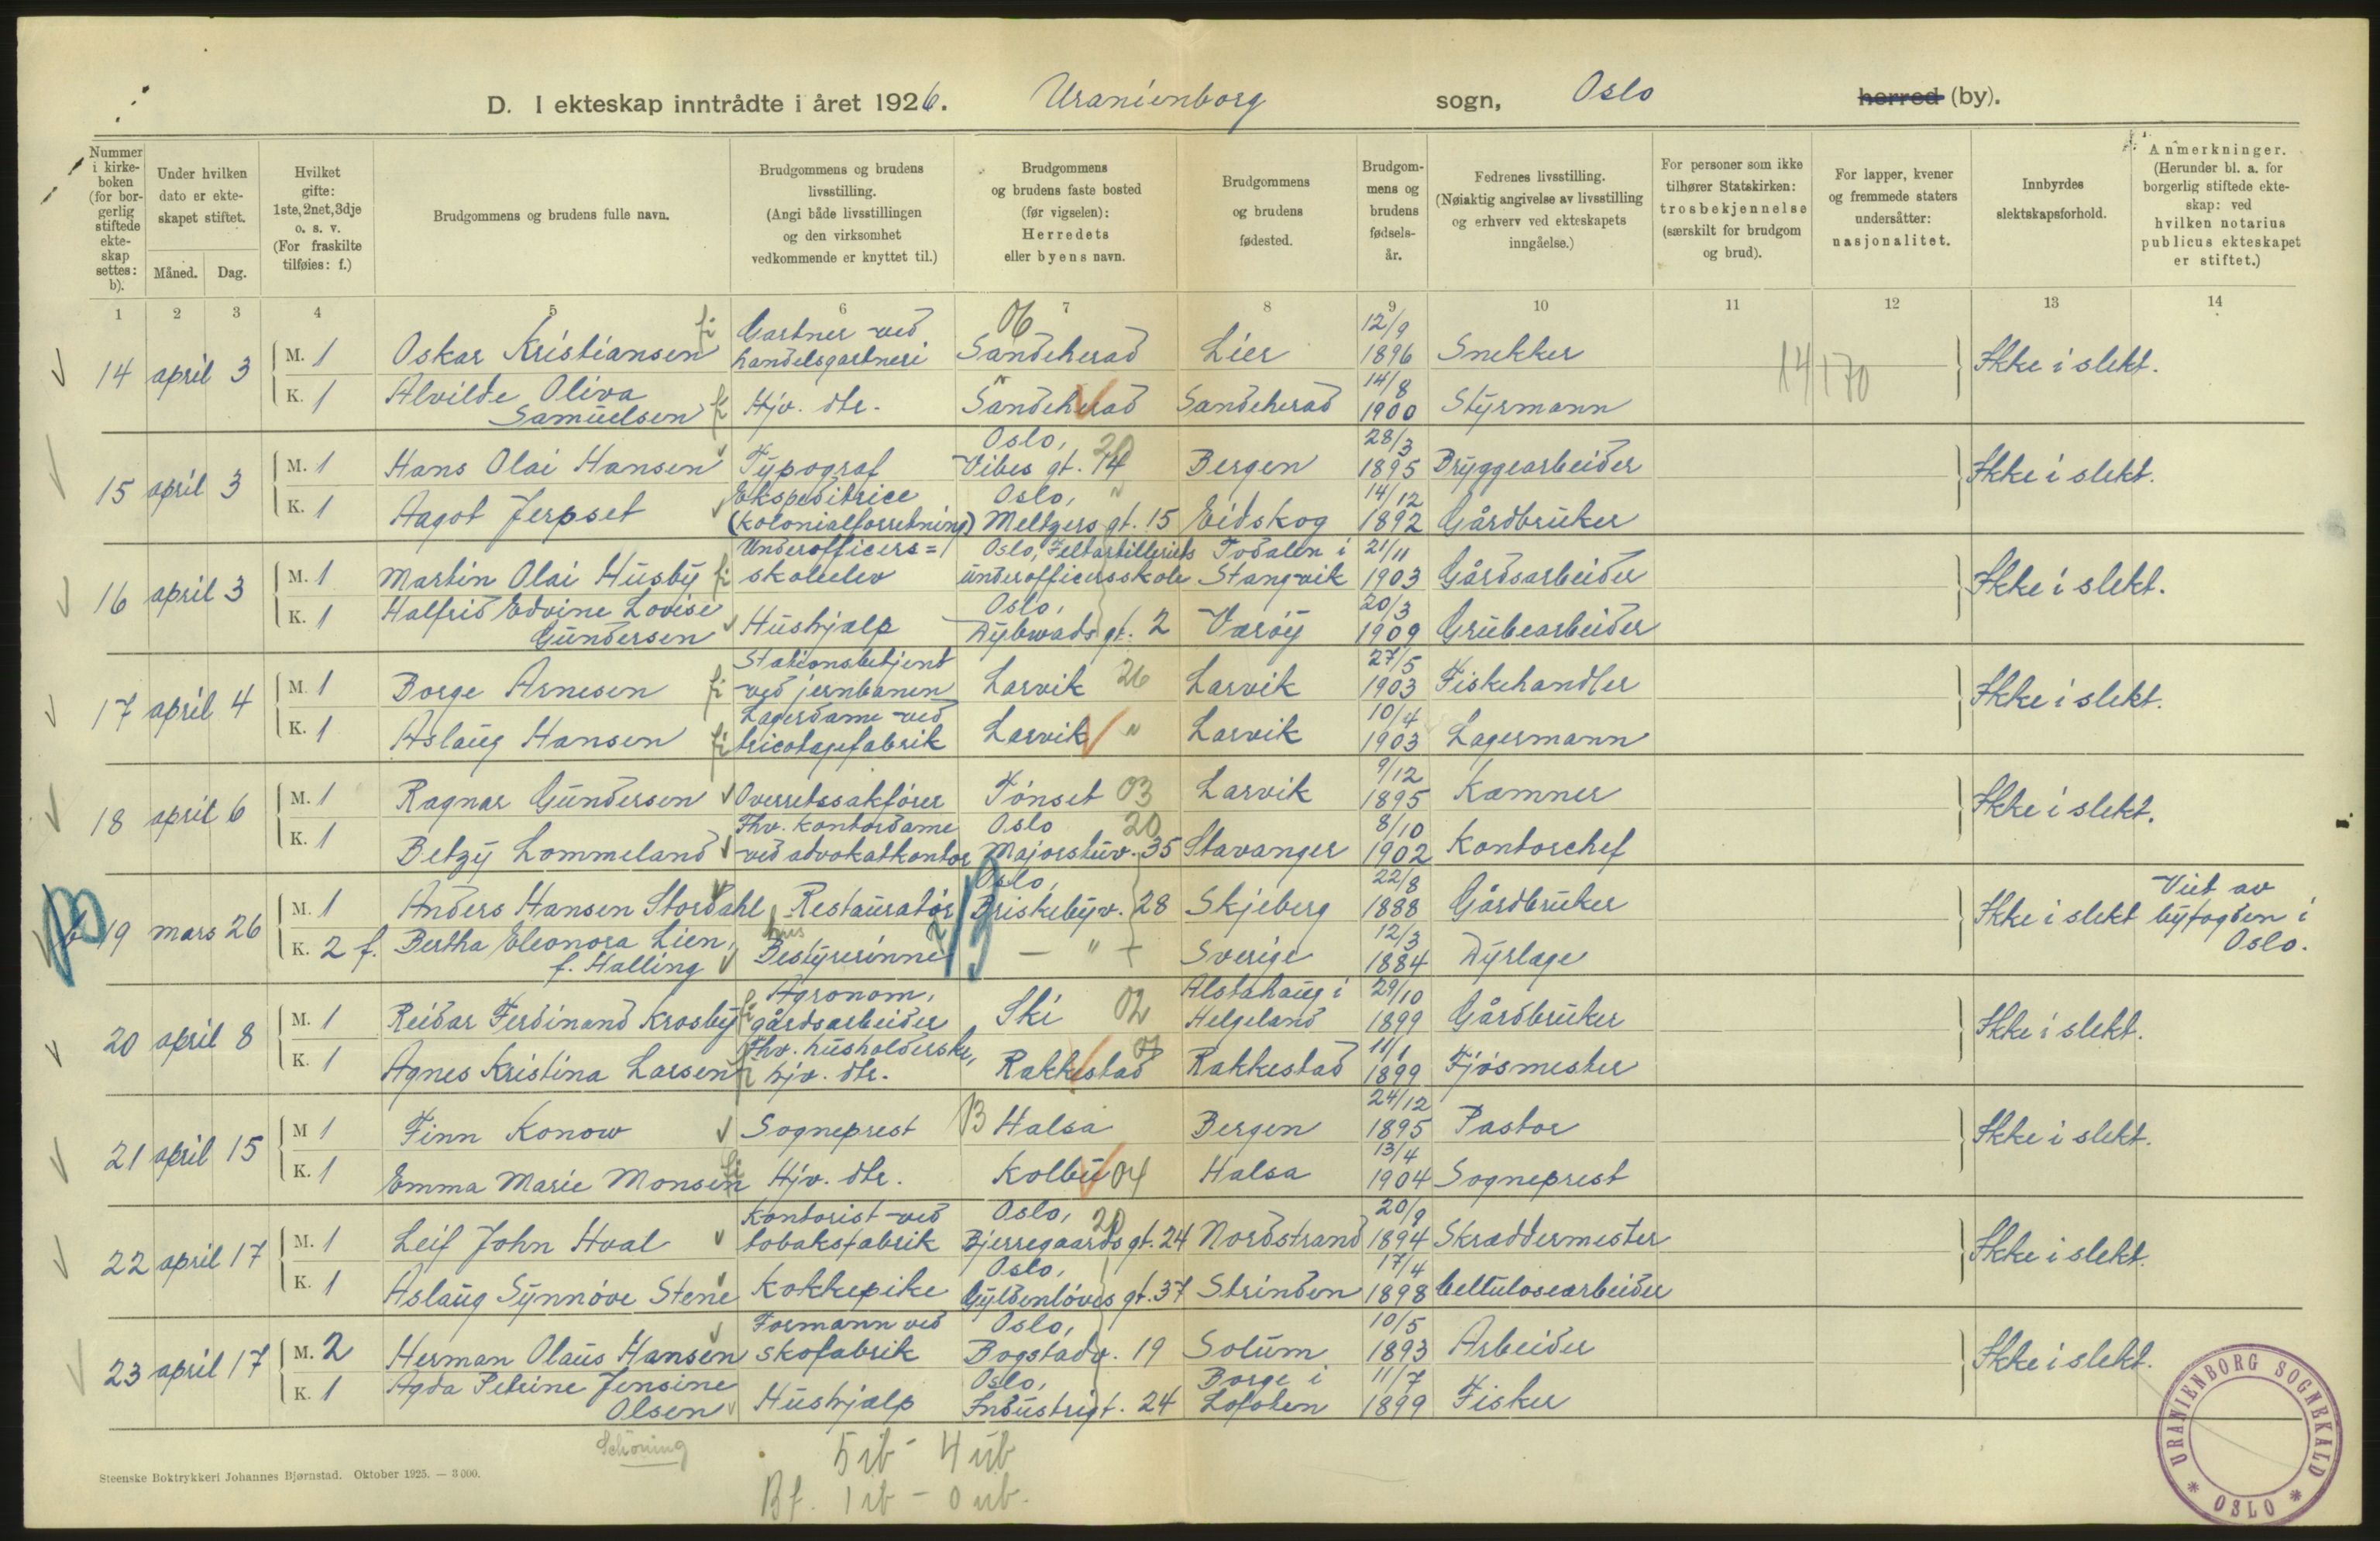 D. I ekteskap inntrådte i året 1926. Uranienborg sogn, Oslo herred (by).
Nummer i kirkeboken (for borgerlig stiftede ekteskap settes: b).
Under hvilken dato er ekteskapet stiftet.
Måned. Dag.
Hvilket gifte: 1ste, 2net, 3dje o. s. v. (For fraskilte tilføies: f.)
Brudgommens og brudens fulle navn.
Brudgommens og brudens livsstilling. (Angi både livsstillingen og den virksomhet vedkommende er knyttet til.)
Brudgommens og brudens faste bosted (før vigselen): Herredets eller byens navn.
Brudgommens og brudens fødested.
Brudgommens og brudens fødselsår.
Fedrenes livsstilling. (Nøiaktig angivelse av livsstilling og erhverv ved ekteskapets inngåelse.)
For personer som ikke tilhører Statskirken: trosbekjennelse (særskilt for brudgom og brud).
For lapper, kvener og fremmede staters undersåtter: nasjonalitet.
Innbyrdes slektskapsforhold.
Anmerkninger. (Herunder bl. a. for borgerlig stiftede ekteskap: ved hvilken notarius publicus ekteskapet er stiftet.)
1 2 3 4 5 6 7 8 9 10 11 12 13 14
14 april 3 M. 1 Oskar Kristiansen fi Gartner ved handelsgartneri 06 Sandeherad Lier 12/9 1896 Snekker 14170 Ikke i slekt.
K. 1 Alvilde Oliva Samuelsen fi Hjv. dtr. Sandeherad Sandeherad 14/8 1900 Styrmann
15 april 3 M. 1 Hans Olai Hansen Typograf Oslo, Vibes gt. 14 20 Bergen 28/3 1895 Bryggearbeider Ikke i slekt.
K. 1 Aagot Jerpset Ekspeditrice (kolonialforretning) Oslo, Meltzers gt. 15 Eidskog 14/12 1892 Gårdbruker
16 april 3 M. 1 Martin Olai Husby fi Underofficers=skoleelev Oslo, Feltartilleriets underofficersskole Todalen i Stangvik 21/11 1903 Gårdsarbeider Ikke i slekt.
K. 1 Halfrid Edvine Lovise Gundersen Hushjælp Oslo, Dybwads gt. 2 Værøy 20/3 1909 Grubearbeider
17 april 4 M. 1 Borge Arnesen fi Stationsbetjent ved jernbanen Larvik 26 Larvik 27/5 1903 Fiskehandler Ikke i slekt.
K. 1 Aslaug Hansen fi Lagerdame ved tricotagefabrik Larvik " Larvik 10/4 1903 Lagermann
18 april 6 M. 1 Ragnar Gundersen Overretssakfører Tønset 03 Larvik 9/12 1895 Kæmner Ikke i slekt.
K. 1 Betzy Lommeland Fhv. kontordame ved advokatkontor Oslo 20 Majorstuv. 35 Stavanger 8/10 1902 Kontorchef
19 mars 26 M. 1 Anders Hansen Stordahl Restauratør Oslo, Briskebyv. 28 Skjeberg 22/8 1888 Gårdbruker Ikke i slekt Viet av byfogden i Oslo.
K. 2 f. Bertha Eleonora Lien, f. Halling hus Bestyrerinne — " — Sverige 12/3 1884 Dyrlæge
20 april 8 M. 1 Reidar Ferdinand Krosby fi Agronom, gårdsarbeider Ski 02 Alstahaug i Helgeland 29/10 1899 Gårdbruker Ikke i slekt.
K. 1 Agnes Kristina Larsen fi Fhv. husholderske, hjv. dtr. Rakkestad Rakkestad 11/1 1899 Fjøsmester
21 april 15 M 1 Finn Konow Sogneprest 13 Halsa Bergen 24/12 1895 Pastor Ikke i slekt.
K. 1 Emma Marie Monsen fi Hjv. dtr. Kolbu 04 Halsa 13/4 1904 Sogneprest
22 april 17 M. 1 Leif John Hval Kontorist ved tobaksfabrik Oslo, 20 Bjerregaards gt. 24 Nordstrand 20/9 1894 Skræddermester Ikke i slekt.
K. 1 Aslaug Synnøve Stene Kokkepike Oslo, Gyldenløves gt. 37 Strinden 17/4 1898 Cellulosearbeider
23 april 17 M. 2 Herman Olaus Hansen Formann ved skofabrik Oslo, Bogstadv. 19 Solum 10/5 1893 Arbeider Ikke i slekt.
K. 1 Agda Petrine Jensine Olsen Hushjælp Oslo, Industrigt. 24 Borge i Lofoten 11/7 1899 Fisker
Schöning
5 ib - 4 ub
Bf. 1 ib - 0 ub.
Steenske Boktrykkeri Johannes Bjørnstad. Oktober 1925. — 3000.
URANIENBORG SOGNEKALD * OSLO *